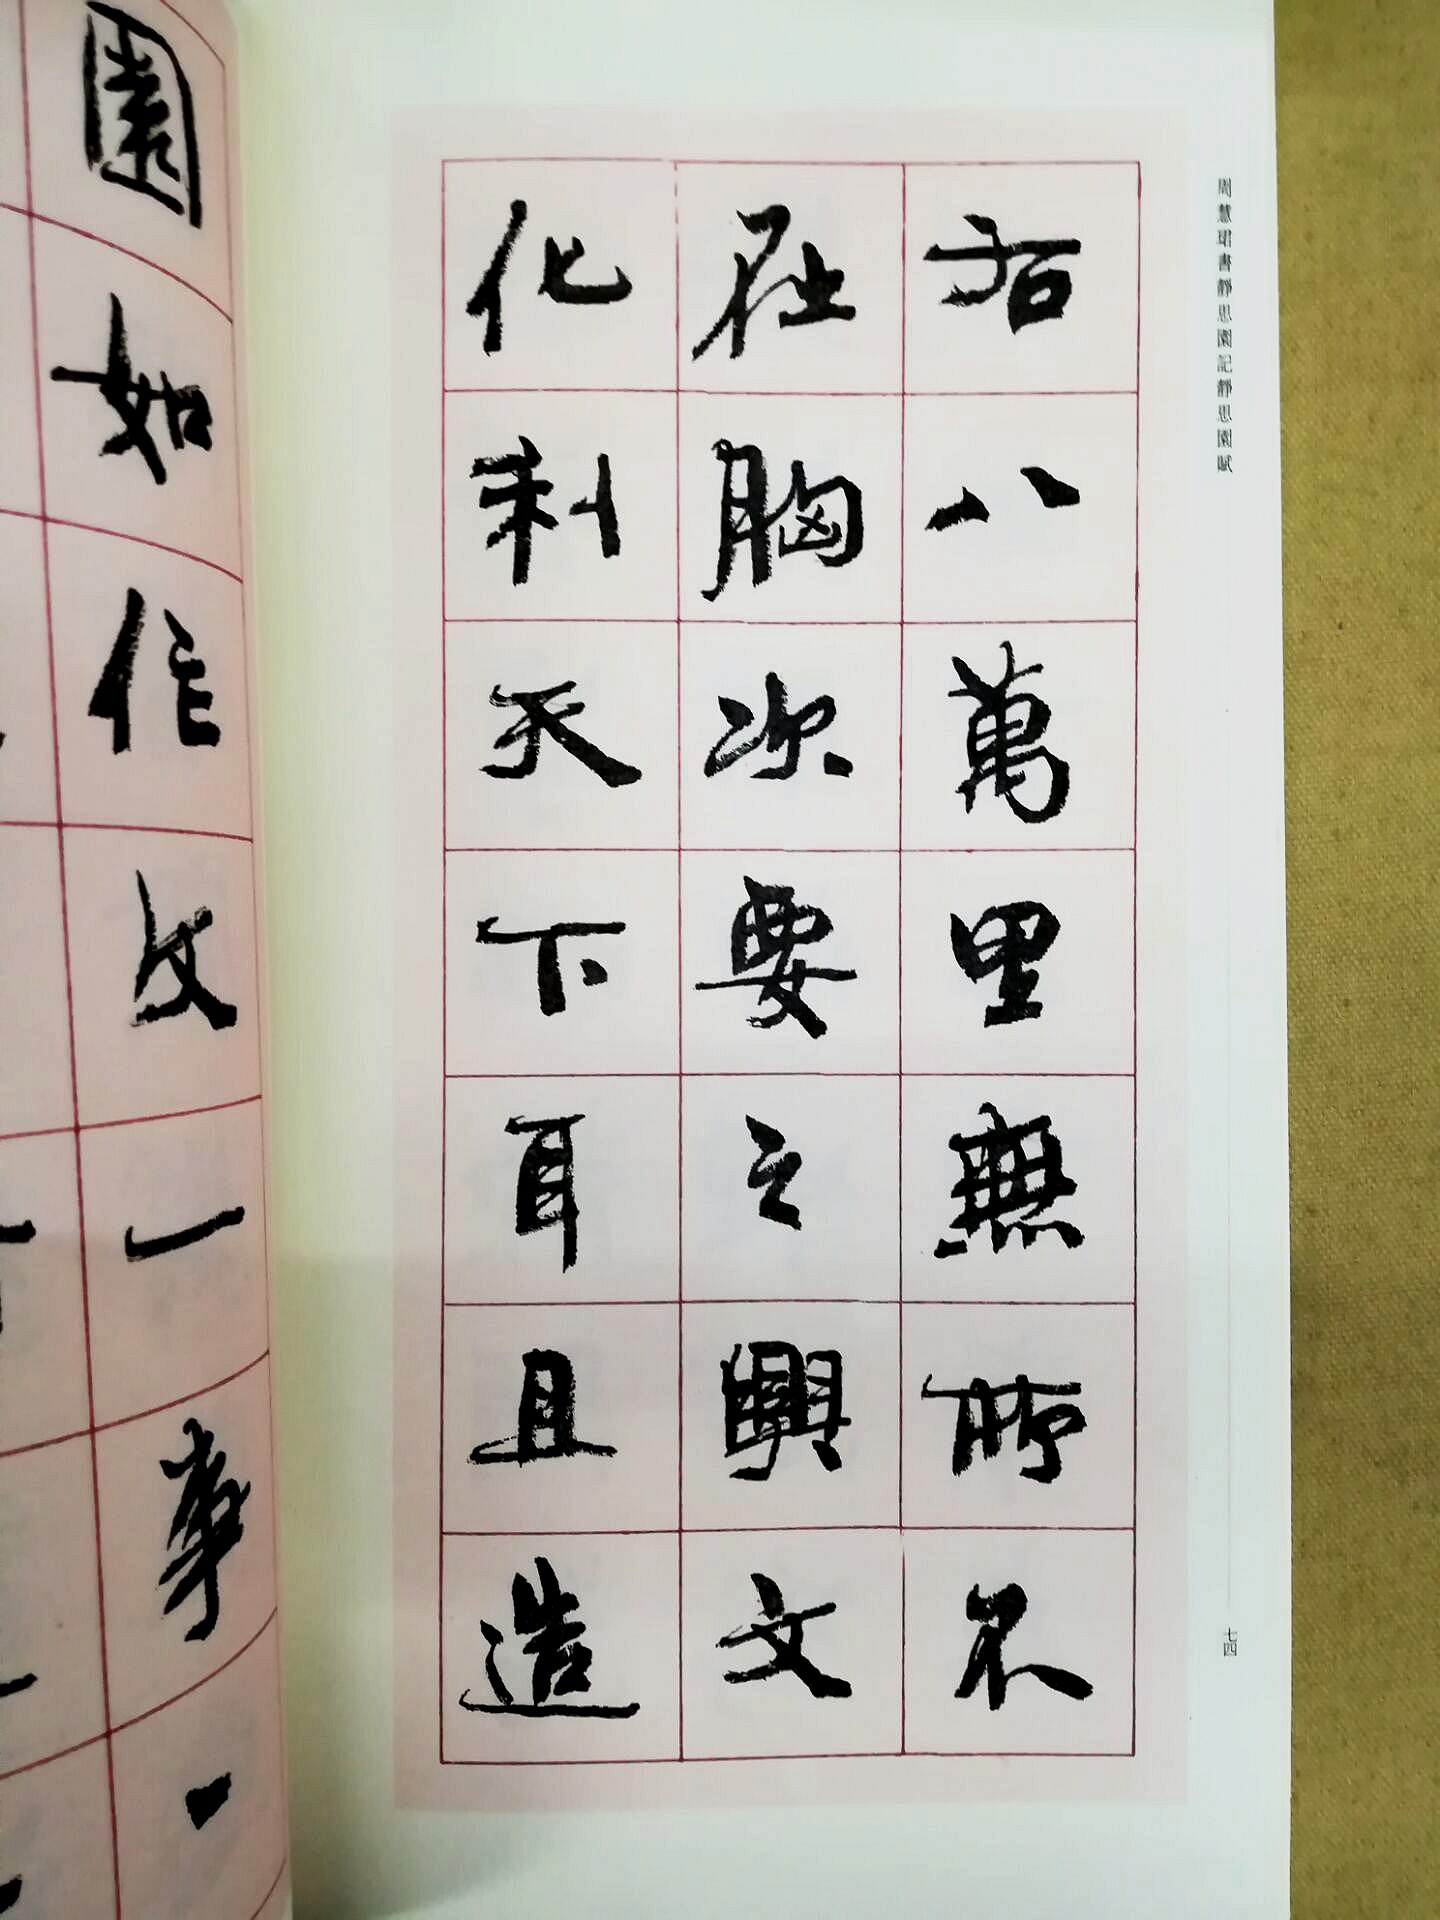 周慧珺書靜思園記靜思園賦
拓八萬里無所不
在胸次要之興文
化利天下耳且造
園如作文一事一
七四